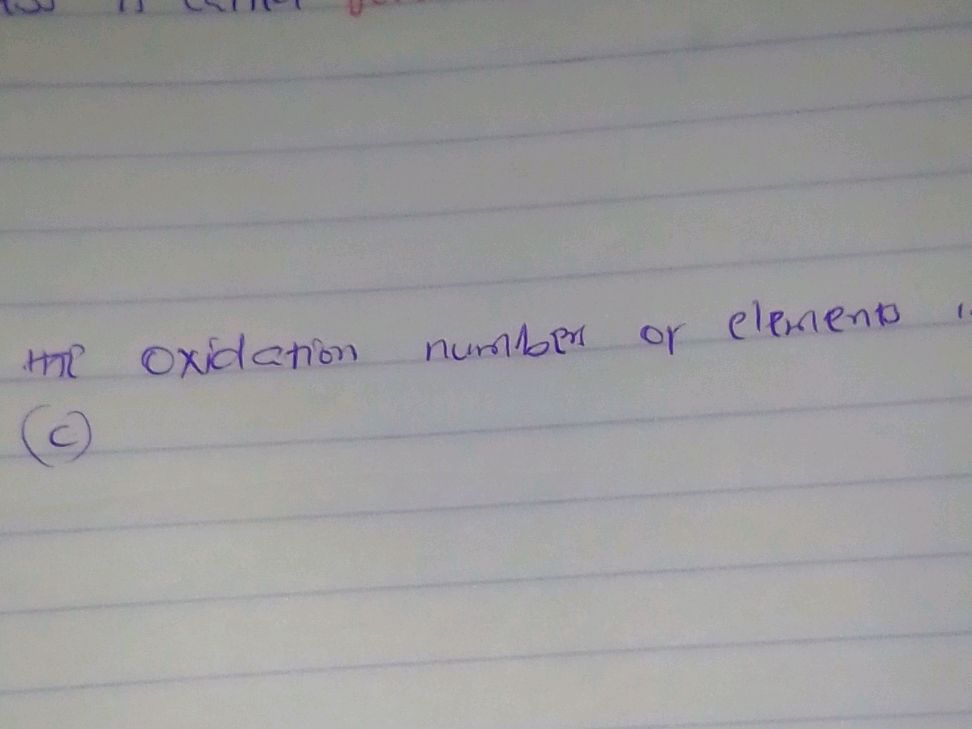 the oxidation number of elements
(c)